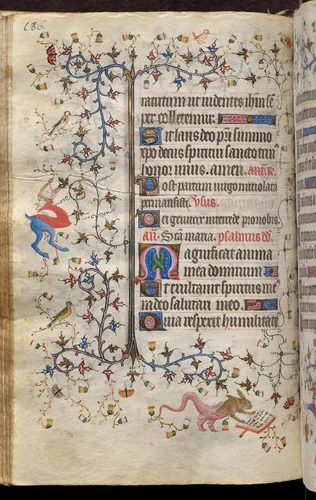 136
tauitum ut uidentes ihm se
per colletemur.
Sit laus deo pri summo
xpo decus spiritui sanctorum
honor unus. amen. ant.
Post partum uirgo inuiolata
permansisti. Vsus.
Dei genitrix intercede pro nobis
an. Sca maria. psalmus dd.
Magnificat anima
mea dominum
Et exultauit spiritus me
us in deo salutari meo.
Quia respexit humilitate